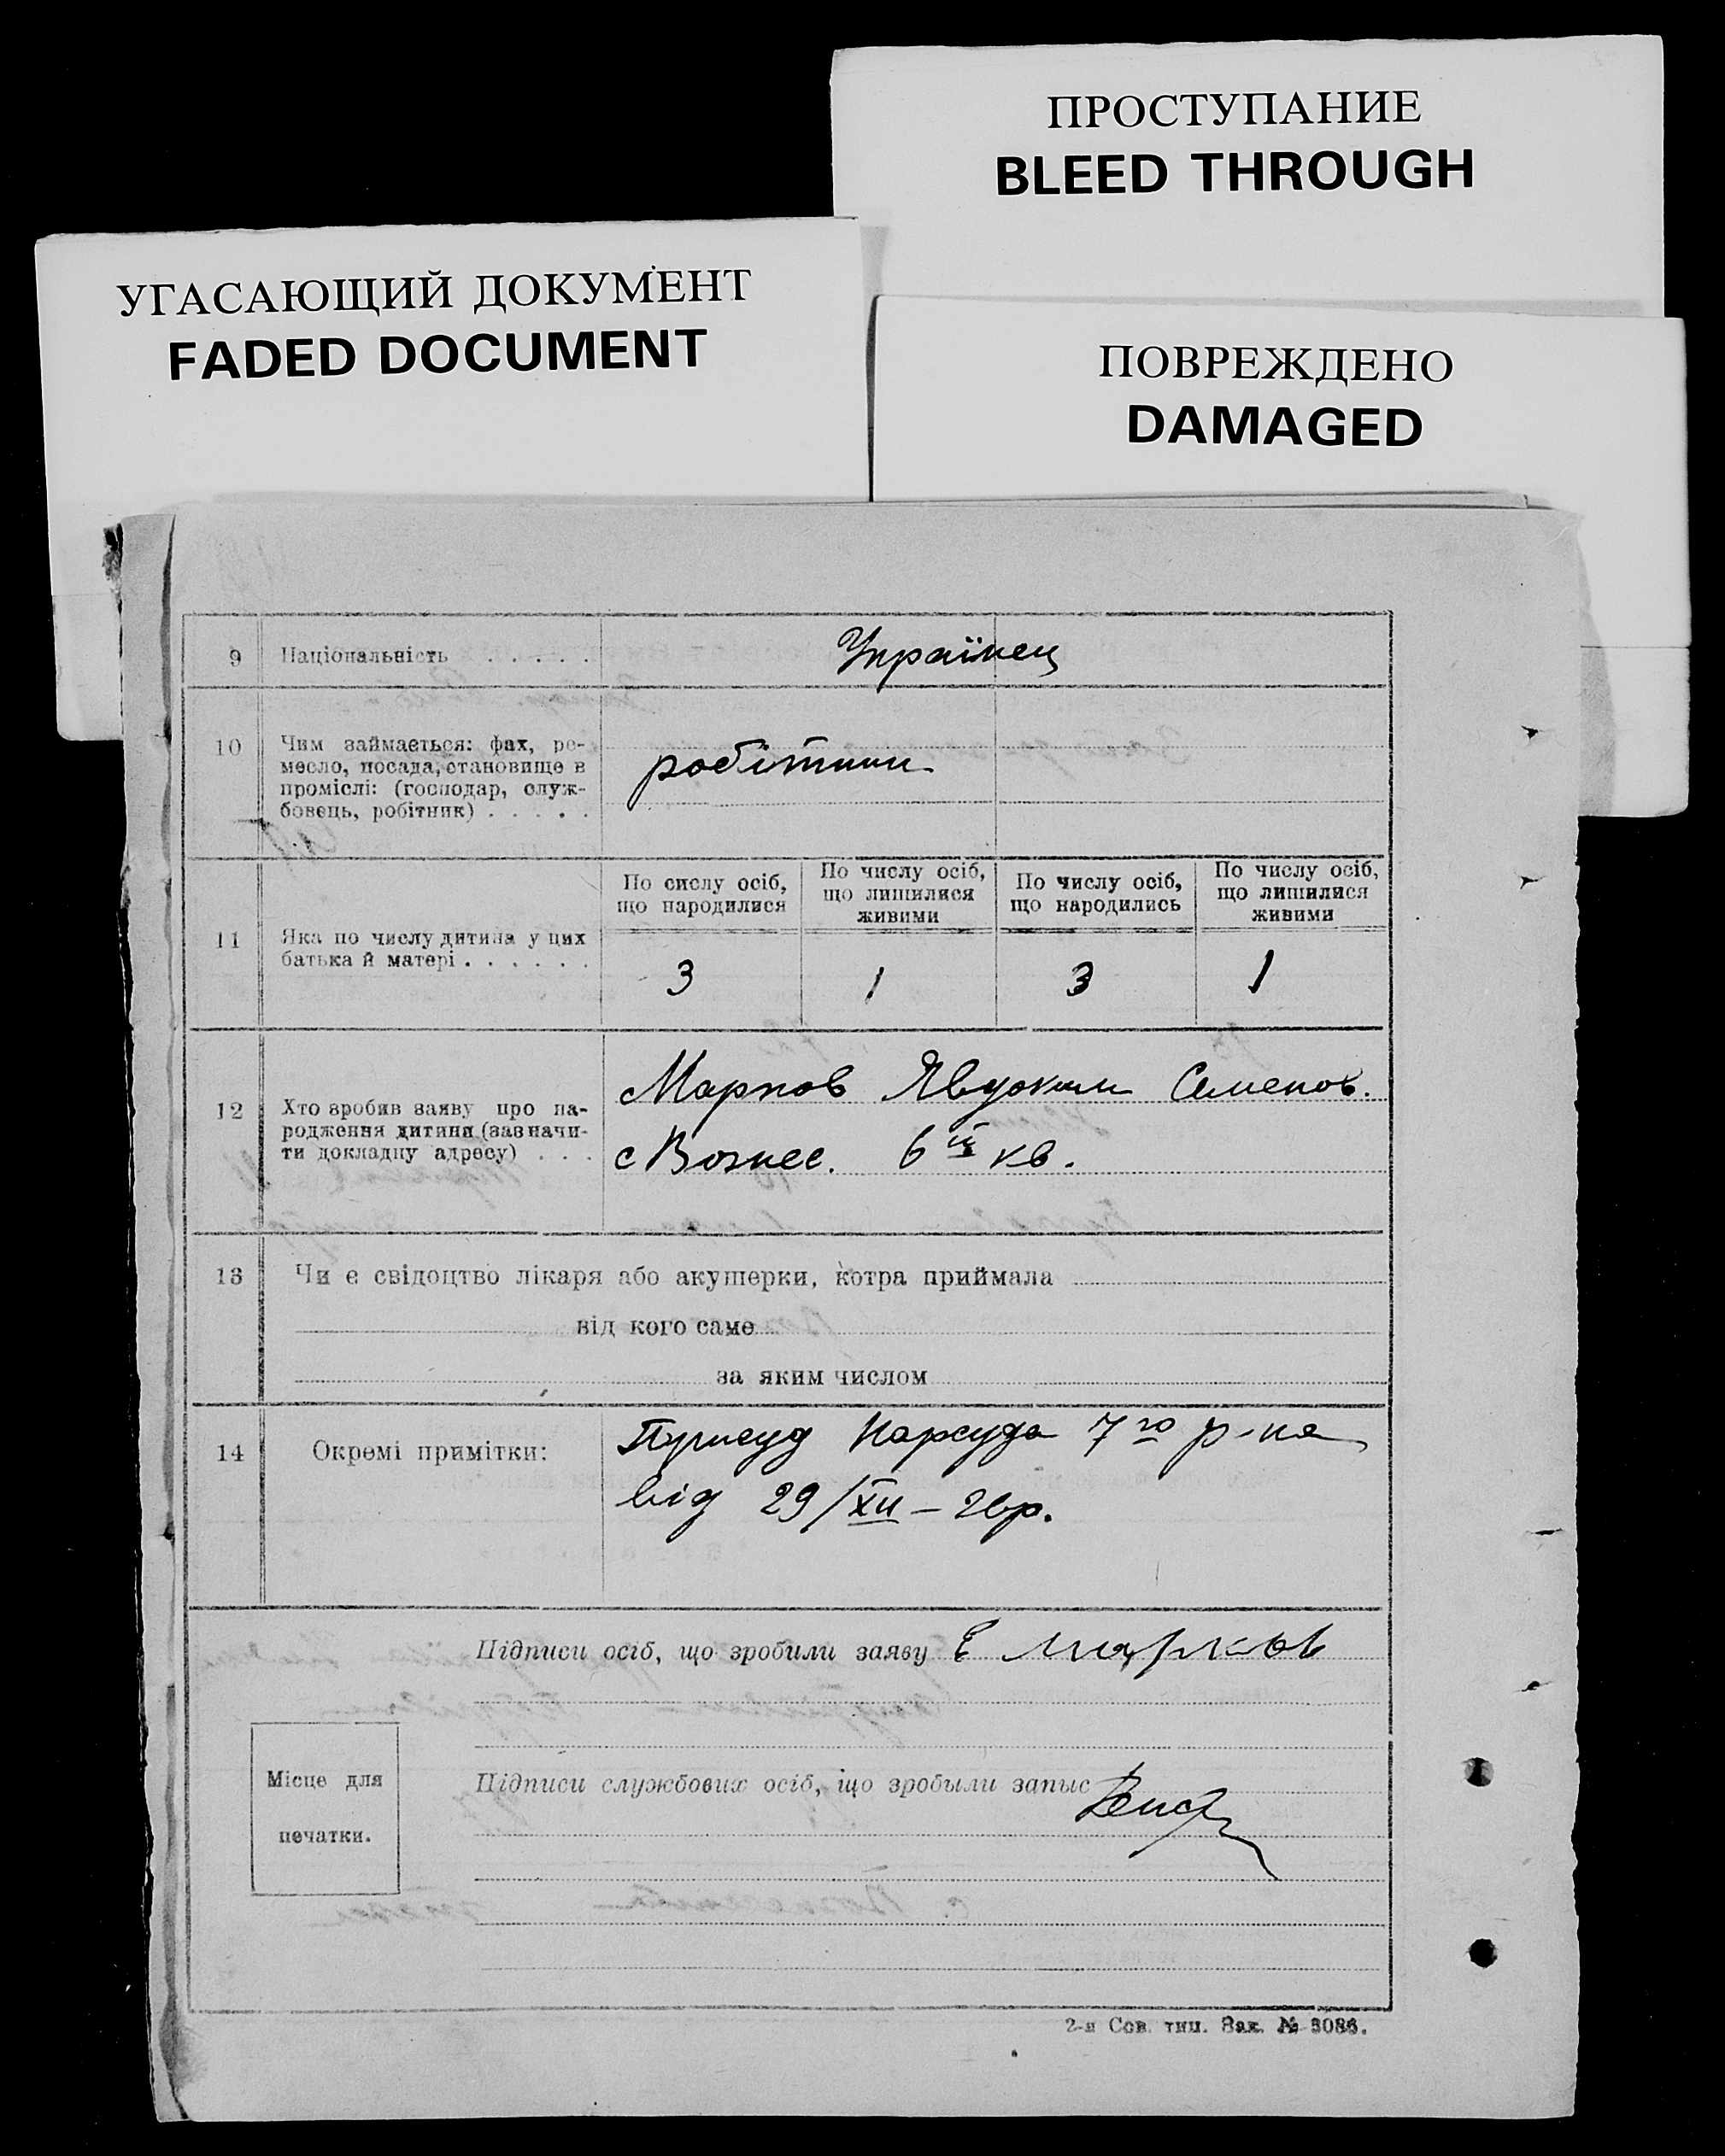 ПРОСТУПАНИЕ
BLEED THROUGH
УГАСАЮЩИЙ ДОКУМЕНТ
FADED DOCUMENT
ПОВРЕЖДЕНО
DAMAGED
9 Національність . . . . . Українец
10 Чим займається: фах, ре-
месло, посада, становище в
промислі: (господар, служ-
бовець, робітник) . . . . .
робітник
По сислу осіб,
що народилися
По числу осіб,
що лишилися
живими
По числу осіб,
що народились
По числу осіб,
що лишилися
живими
11 Яка по числу дитина у цих
батька й матері . . . . . .
3 1 3 1
12 Хто зробив заяву про на-
родження дитини (зазначи-
ти докладну адресу) . . .
Марков Явдоким Семенов.
с Вознес. 6ій кв.
13 Чи є свідоцтво лікаря або акушерки, котра приймала
від кого саме
за яким числом
14 Окремі примітки:
Присуд Нарсуда 7го р-на
від 29/XII – 26р.
Підписи осіб, що зробили заяву Е Марков
Підписи службових осіб, що зробыли запыс
Місце для
печатки.
2-я Сов. тип. Зак. № 3086.